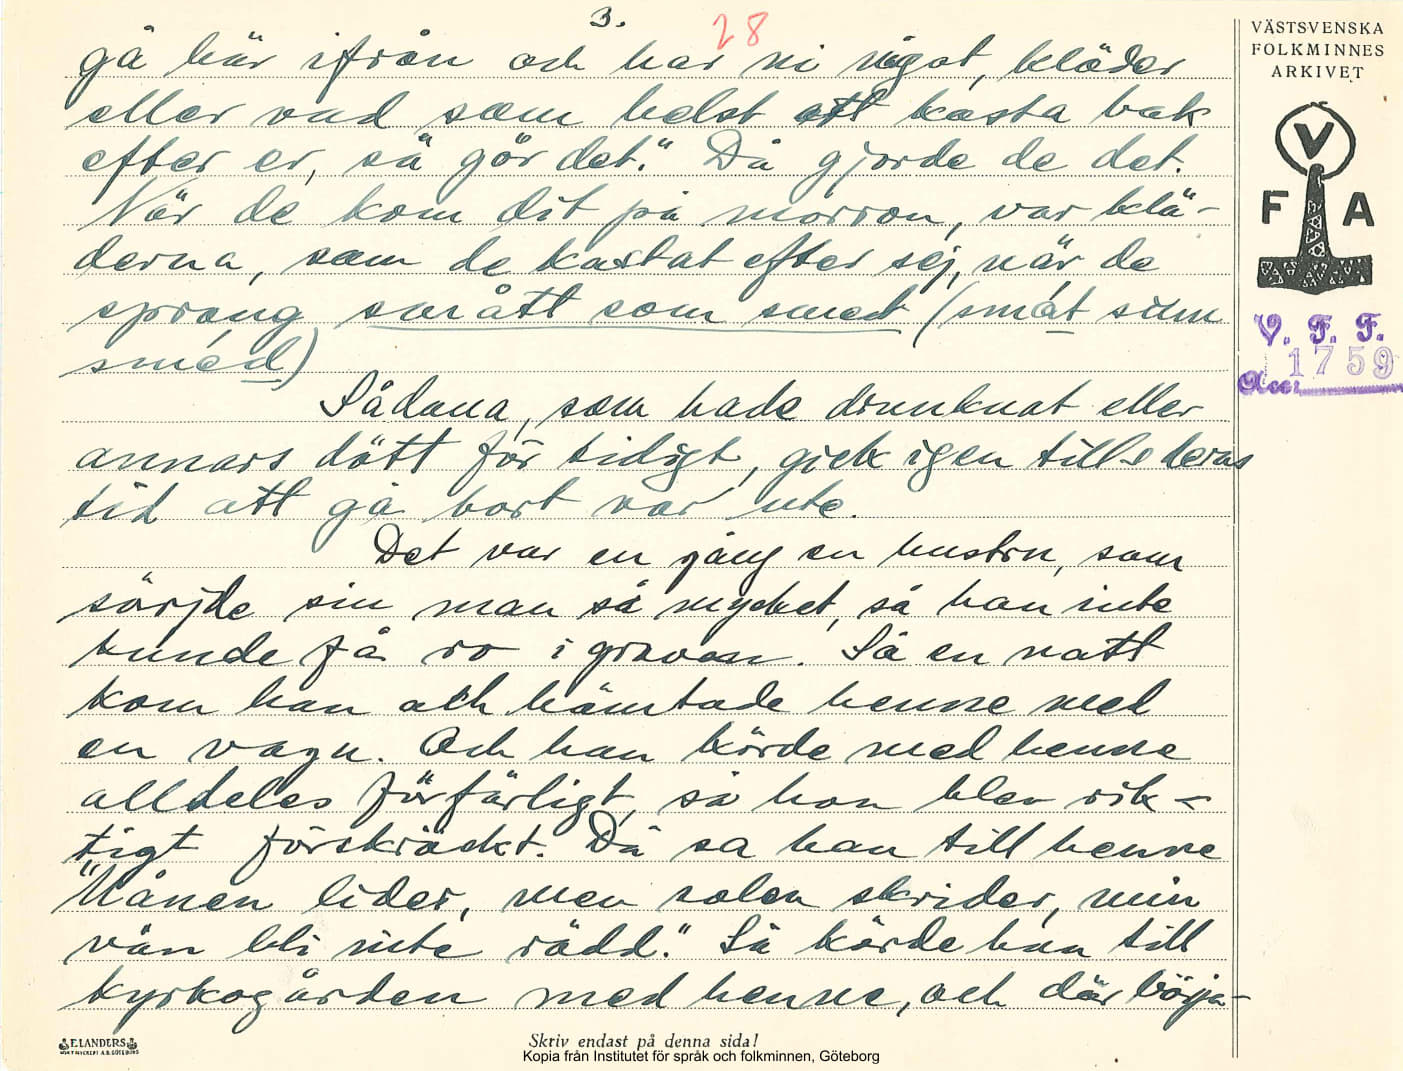 3.
28
gå här ifrån och har ni något, kläder
eller vad som helst att kasta bak
efter er, så gör det." Då gjorde de det.
När de kom dit på morron, var klä-
derna, som de kastat efter sej, när de
sprang smått som smed (småt sum
sméd)
Sådana, som hade drunknat eller
annars dött för tidigt, gick igen tills deras
tid att gå bort var ute.
Det var en gång en hustru, som
sörjde sin man så mycket, så han inte
kunde få ro i graven. Så en natt
kom han och hämtade henne med
en vagn. Och han körde med henne
alldeles förfärligt, så hon blev rik-
tigt förskräckt. Då sa han till henne
"Månen lider, men solen skrider, min
vän bli inte rädd." Så körde han till
kyrkogården med henne, och där börja-
VÄSTSVENSKA
FOLKMINNES
ARKIVET
V
F A
V. F. F.
1759
Acc:
E.LANDERS
Skriv endast på denna sida!
Kopia från Institutet för språk och folkminnen, Göteborg